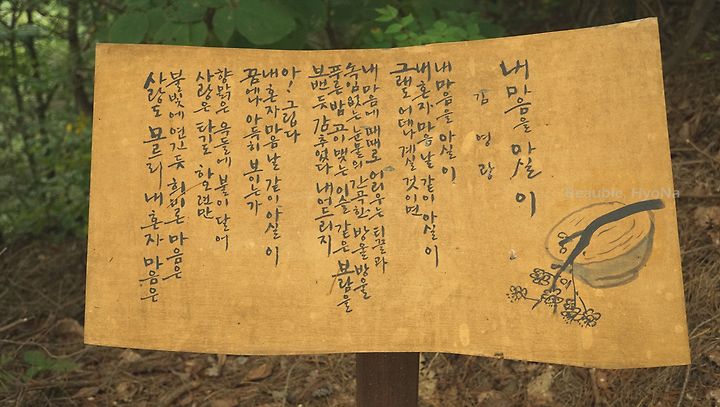 내 마음을 아실 이
김 영 랑
내 마음을 아실 이
내 혼자 마음 날 같이 아실 이
그래도 어데나 계실 것이면
내 마음에 때때로 어리우는 티끌과
속임없는 눈물의 간곡한 방울 방울
푸른 밤 고이 맺는 이슬 같은 보람을
보밴 듯 감추었다 내어드리지
아! 그립다
내 혼자 마음 날 같이 아실 이
꿈에나 아득히 보이는가
향맑은 옥돌에 불이 달어
사랑은 타기도 하오련만
불빛에 연긴 듯 희미론 마음은
사랑도 모르리 내 혼자 마음은
Beauble, HyoNa